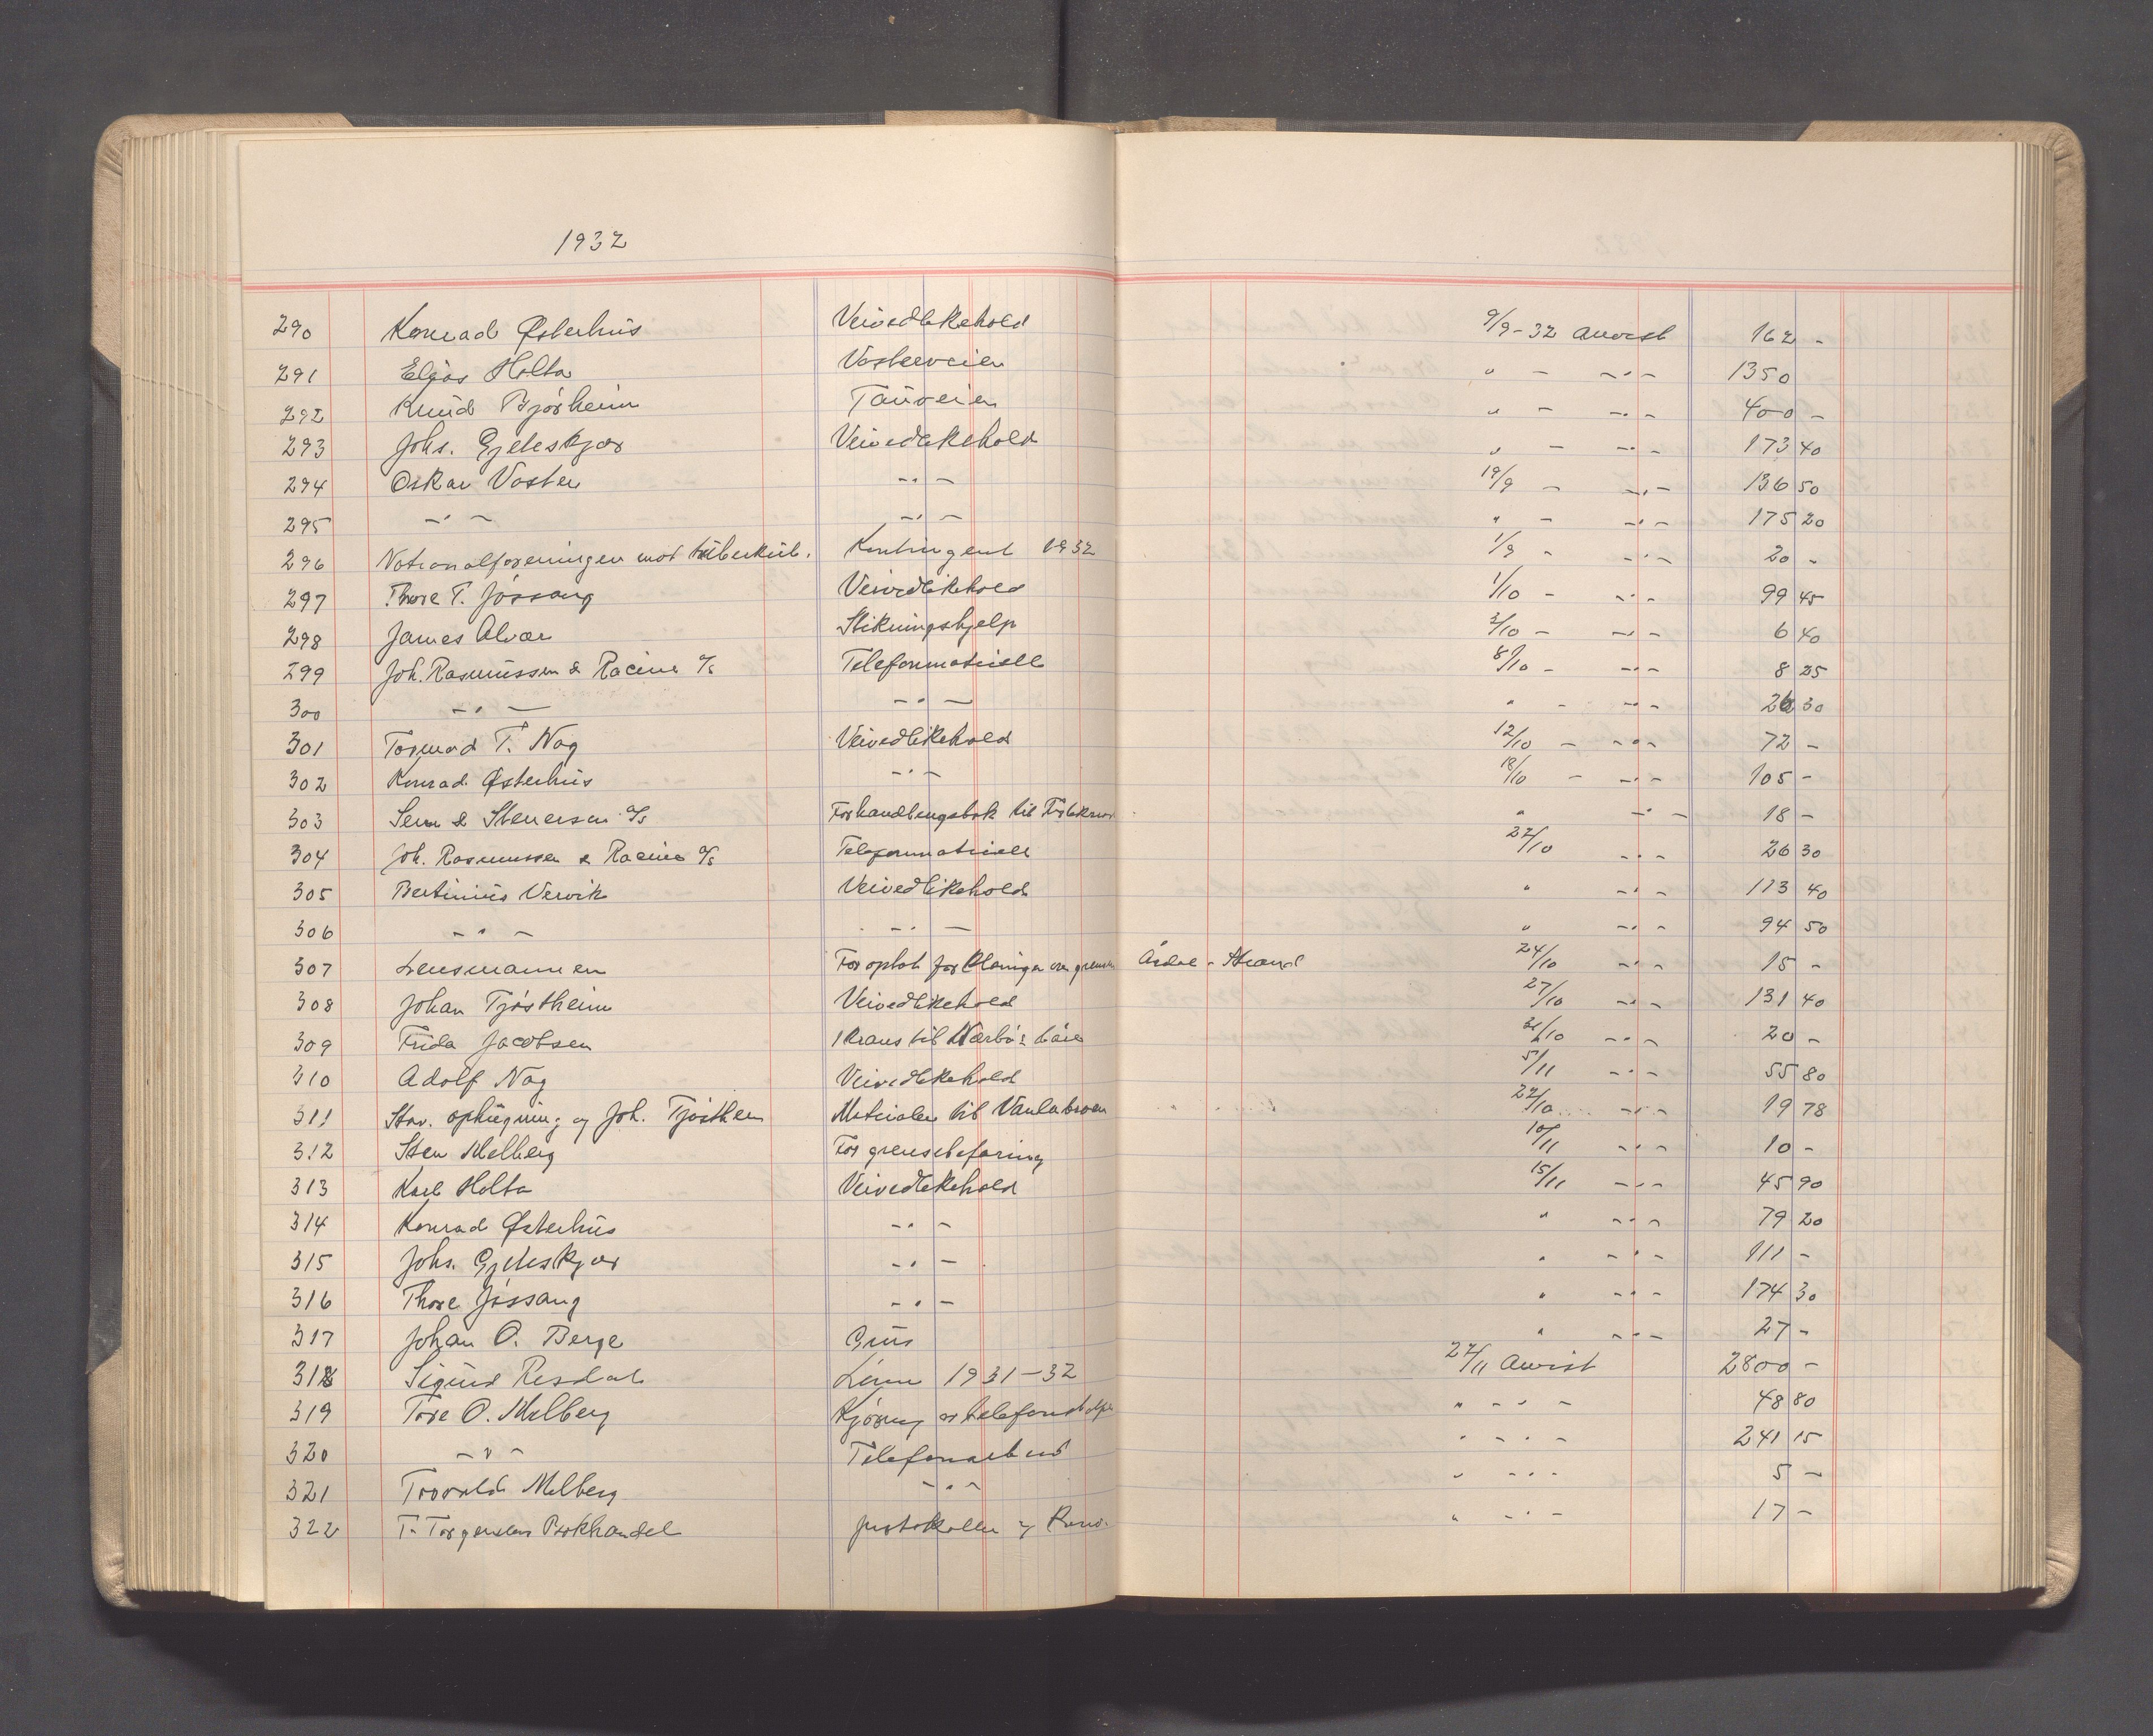 1932
290 Konrad Østerhus Veivedlikehold 9/9-32 anvist 162 -
291 Elias Holta Vosterveien " - -"- 1350
292 Knud Bjørheim Tauveien " - -"- 400 -
293 Johs. Gjeleskjær Veivedlikehold " - -"- 173 40
294 Oskar Voster -"- 19/9 - -"- 136 50
295 -"- -"- " - -"- 175 20
296 Nationalforeningen mot tuberkul. Kontingent 1932 1/9 - -"- 20 -
297 Thore T. Jøssang Veivedlikehold 1/10 - -"- 99 45
298 James Alvær Stikningshjelp 3/10 - -"- 6 40
299 Joh. Rasmussen & Racine A/s Telefonmateriell 8/10 - -"- 8 25
300 -"- -"- " - -"- 26 30
301 Tormod T. Nag Veivedlikehold 12/10 - -"- 72 -
302 Konrad Østerhus -"- 18/10 - -"- 105 -
303 Sem & Stenersen A/s Forhandlingsbok til " -"- 18 -
304 Joh. Rasmussen & Racine A/s Telefonmateriell 22/10 -"- 26 30
305 Bertinius Vervik Veivedlikehold " -"- 113 40
306 -"- -"- " -"- 94 50
307 Lensmannen For optak for grensen Årdal - Strand 24/10 -"- 15 -
308 Johan Tjøstheim Veivedlikehold 27/10 -"- 131 40
309 Frida Jacobsen 1 krans til Nærbø's båre 31/10 -"- 20 -
310 Adolf Nag Veivedlikehold 5/11 -"- 55 80
311 Stav. ophugning og Joh. Tjøstheim Materialer til Vaulabroen 22/10 -"- 19 78
312 Sten Melberg For grensebefaring 10/11 -"- 10 -
313 Karl Holta Veivedlikehold 15/11 -"- 45 90
314 Konrad Østerhus -"- " -"- 79 20
315 Johs. Gjeleskjær -"- " -"- 111 -
316 Thore Jøssang -"- " -"- 174 30
317 Johan O. Berge Grus " -"- 27 -
318 Sigurd Risdal Lønn 1931-32 27/11 Anvist 2800 -
319 Tore O. Melberg Kjøring av telefonstolper " -"- 48 80
320 -"- Telefonarbeid " -"- 241 15
321 Torvald Melberg -"- " -"- 5 -
322 T. Torgersens Bokhandel protokoller og " -"- 17 -